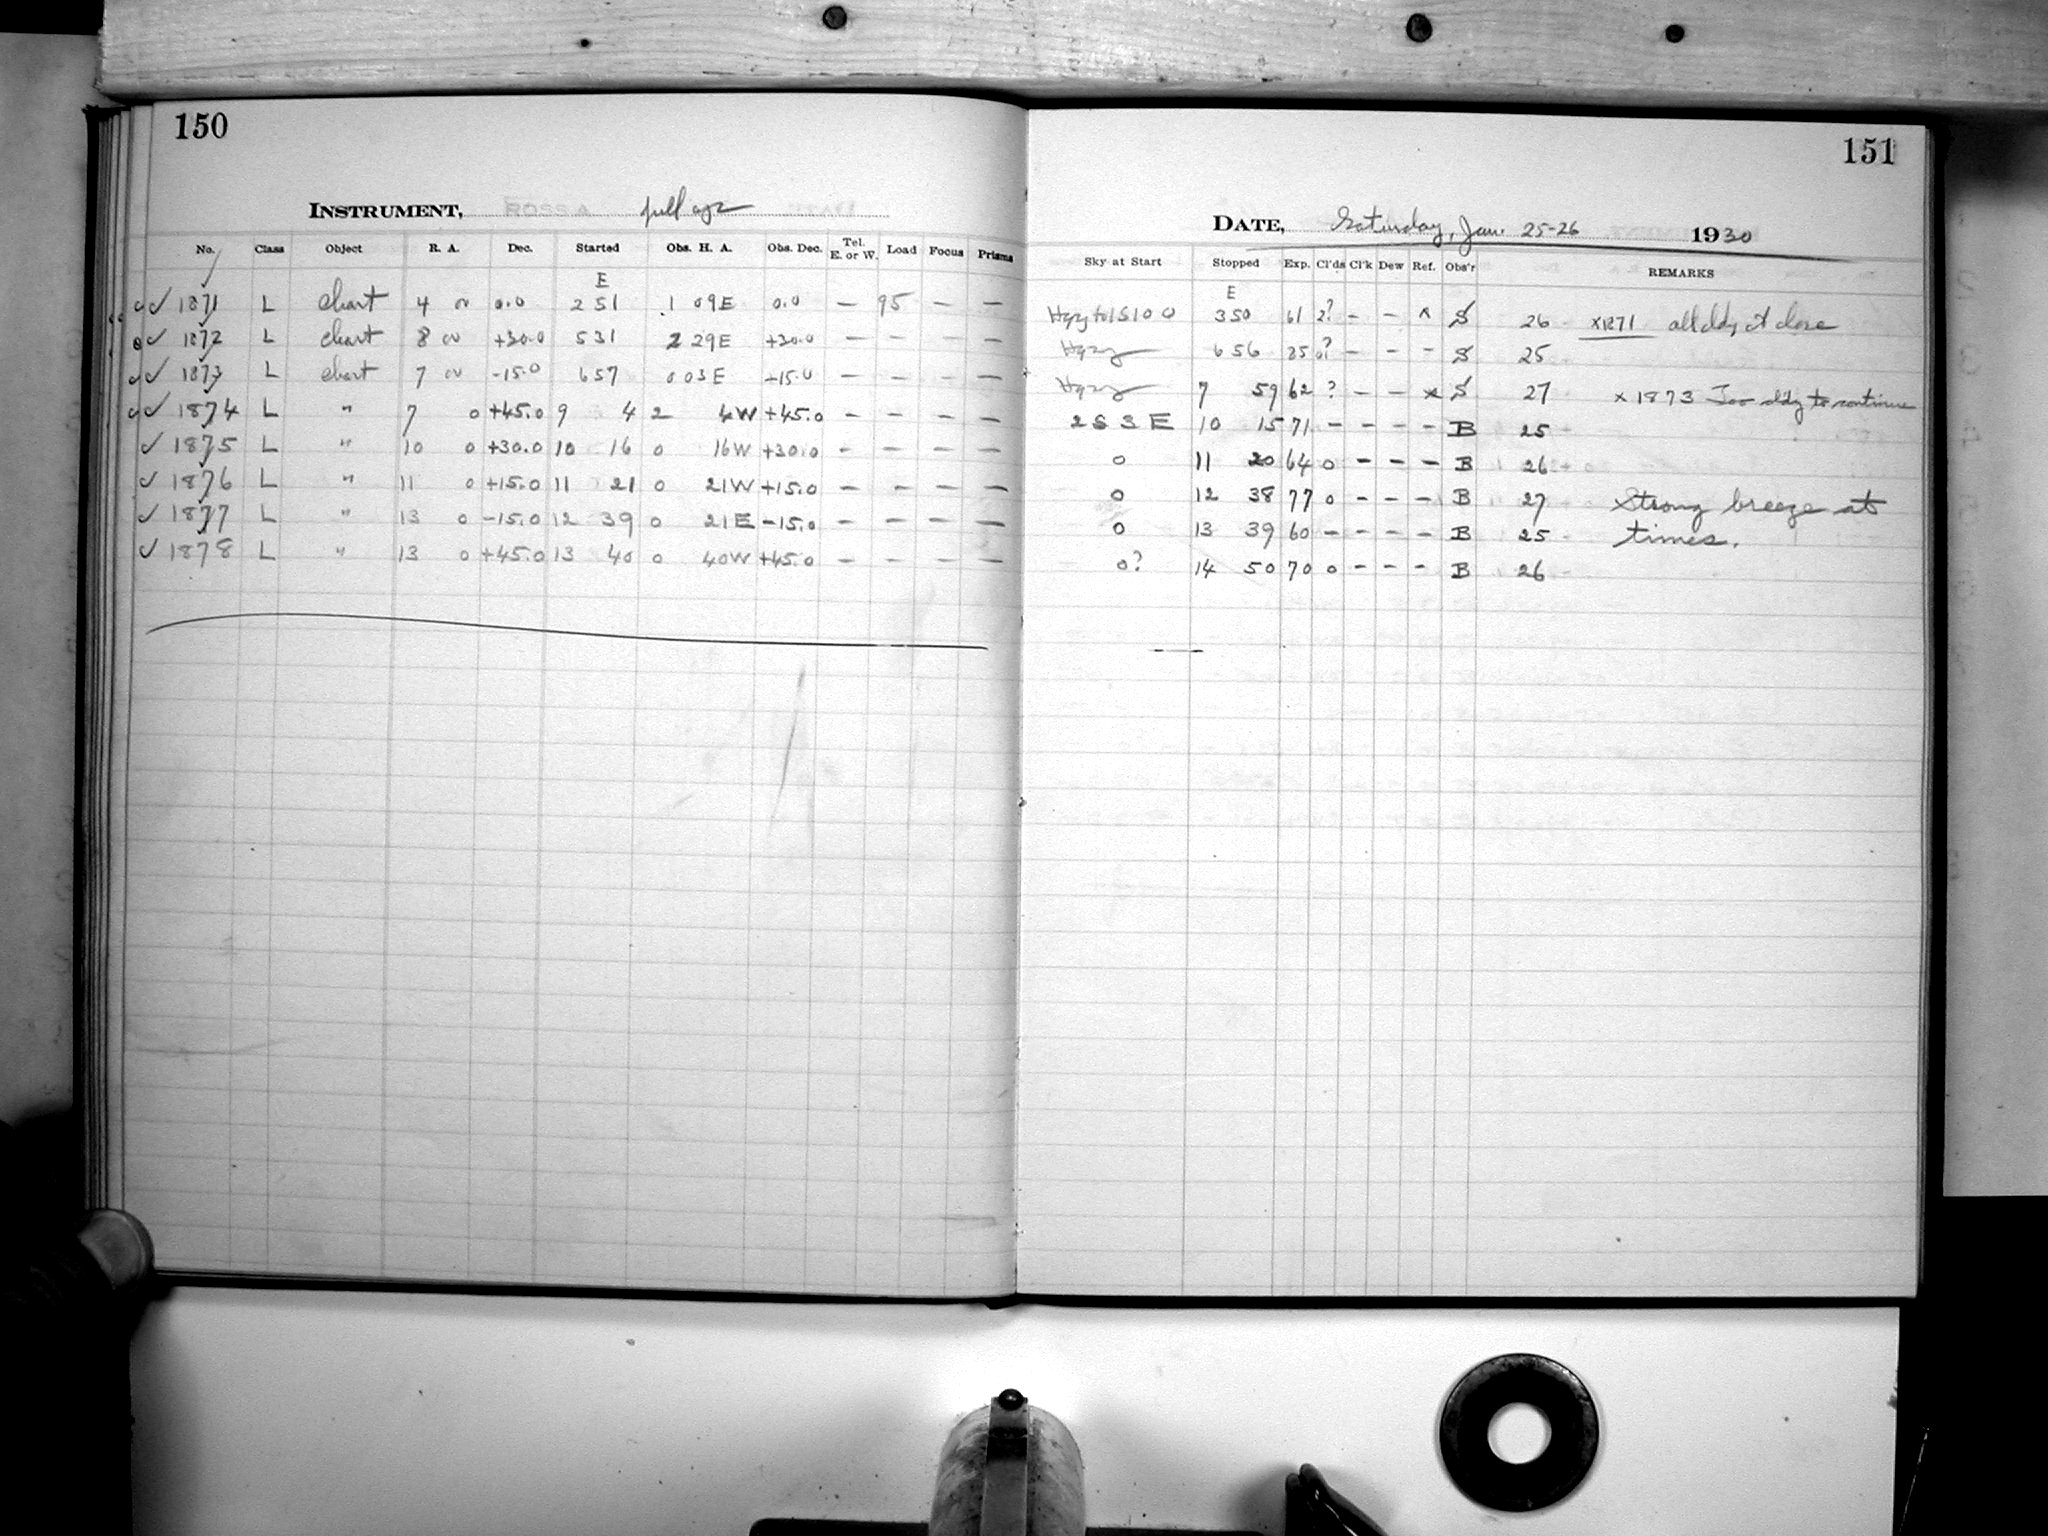 150
INSTRUMENT, ROSS A full ap
No. Class Object R. A. Dec. Started Obs. H. A. Obs. Dec. Tel. E. or W. Load Focus Prisms
E
✓ 1871 L chart 4 0 0.0 2 51 1 09E 0.0 — 95 — —
✓ 1872 L chart 8 00 +30.0 5 31 2 29E +30.0 — — — —
✓ 1873 L chart 7 00 -15.0 6 57 0 03E -15.0 — — — —
✓ 1874 L " 7 0 +45.0 9 4 2 4W +45.0 — — — —
✓ 1875 L " 10 0 +30.0 10 16 0 16W +30.0 — — — —
✓ 1876 L " 11 0 +15.0 11 21 0 21W +15.0 — — — —
✓ 1877 L " 13 0 -15.0 12 39 0 21E -15.0 — — — —
✓ 1878 L " 13 0 +45.0 13 40 0 40W +45.0 — — — —
151
DATE, Saturday, Jan 25-26 1930
Sky at Start Stopped Exp. Cl'ds Cl'k Dew Ref. Obs'r REMARKS
E
Hazy 3 50 61 2? - - x S 26 x1871 all cldy at close
Hazy 6 56 85 0? - - - S 25
Hazy 7 59 62 ? - - x S 27 x 1873 Too cldy to continue
2 S 3 E 10 15 71 - - - - B 25
0 11 20 64 0 - - - B 26
0 12 38 77 0 - - - B 27 Strong breeze at
0 13 39 60 - - - - B 25 times.
0? 14 50 70 0 - - - B 26